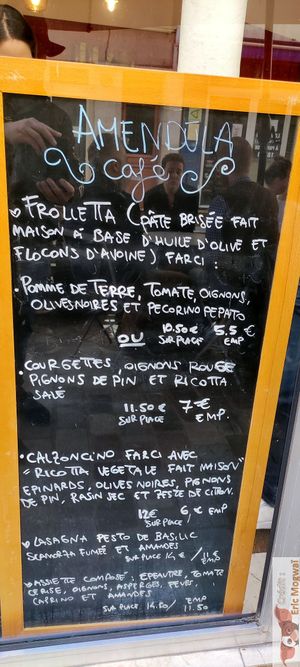 AMENDULA
Café
FROLLETTA (PÂTE BRISÉE FAIT
MAISON A BASE D'HUILE D'OLIVE ET
FLOCONS D'AVOINE) FARCI :
• POMME DE TERRE, TOMATE, OIGNONS,
OLIVES NOIRES ET PECORINO PEPATO
10.50€ 5.5€
OU SUR PLACE EMP
• COURGETTES, OIGNONS ROUGE
PIGNONS DE PIN ET RICOTTA
SALÉ
11.50€ 7€
SUR PLACE EMP.
• CALZONCINO FARCI AVEC
"RICOTTA VEGETALE FAIT MAISON"
EPINARDS, OLIVES NOIRES, PIGNONS
DE PIN, RASIN SEC ET ZESTE DE CITRON.
12€ 6€ EMP
SUR PLACE
LASAGNA PESTO DE BASILIC
SCAMORZA FUMÉE ET AMANDES
SUR PLACE 14€ / 11.5
EMP
ASSIETTE COMPOSÉ: EPEAUTRE, TOMATE
CERISE, OIGNONS, ASPERGES, FEVES,
CAPRINO ET AMANDES
SUR PLACE 14.80 / EMP
11.50
Crédits :
Eric Mogwaï